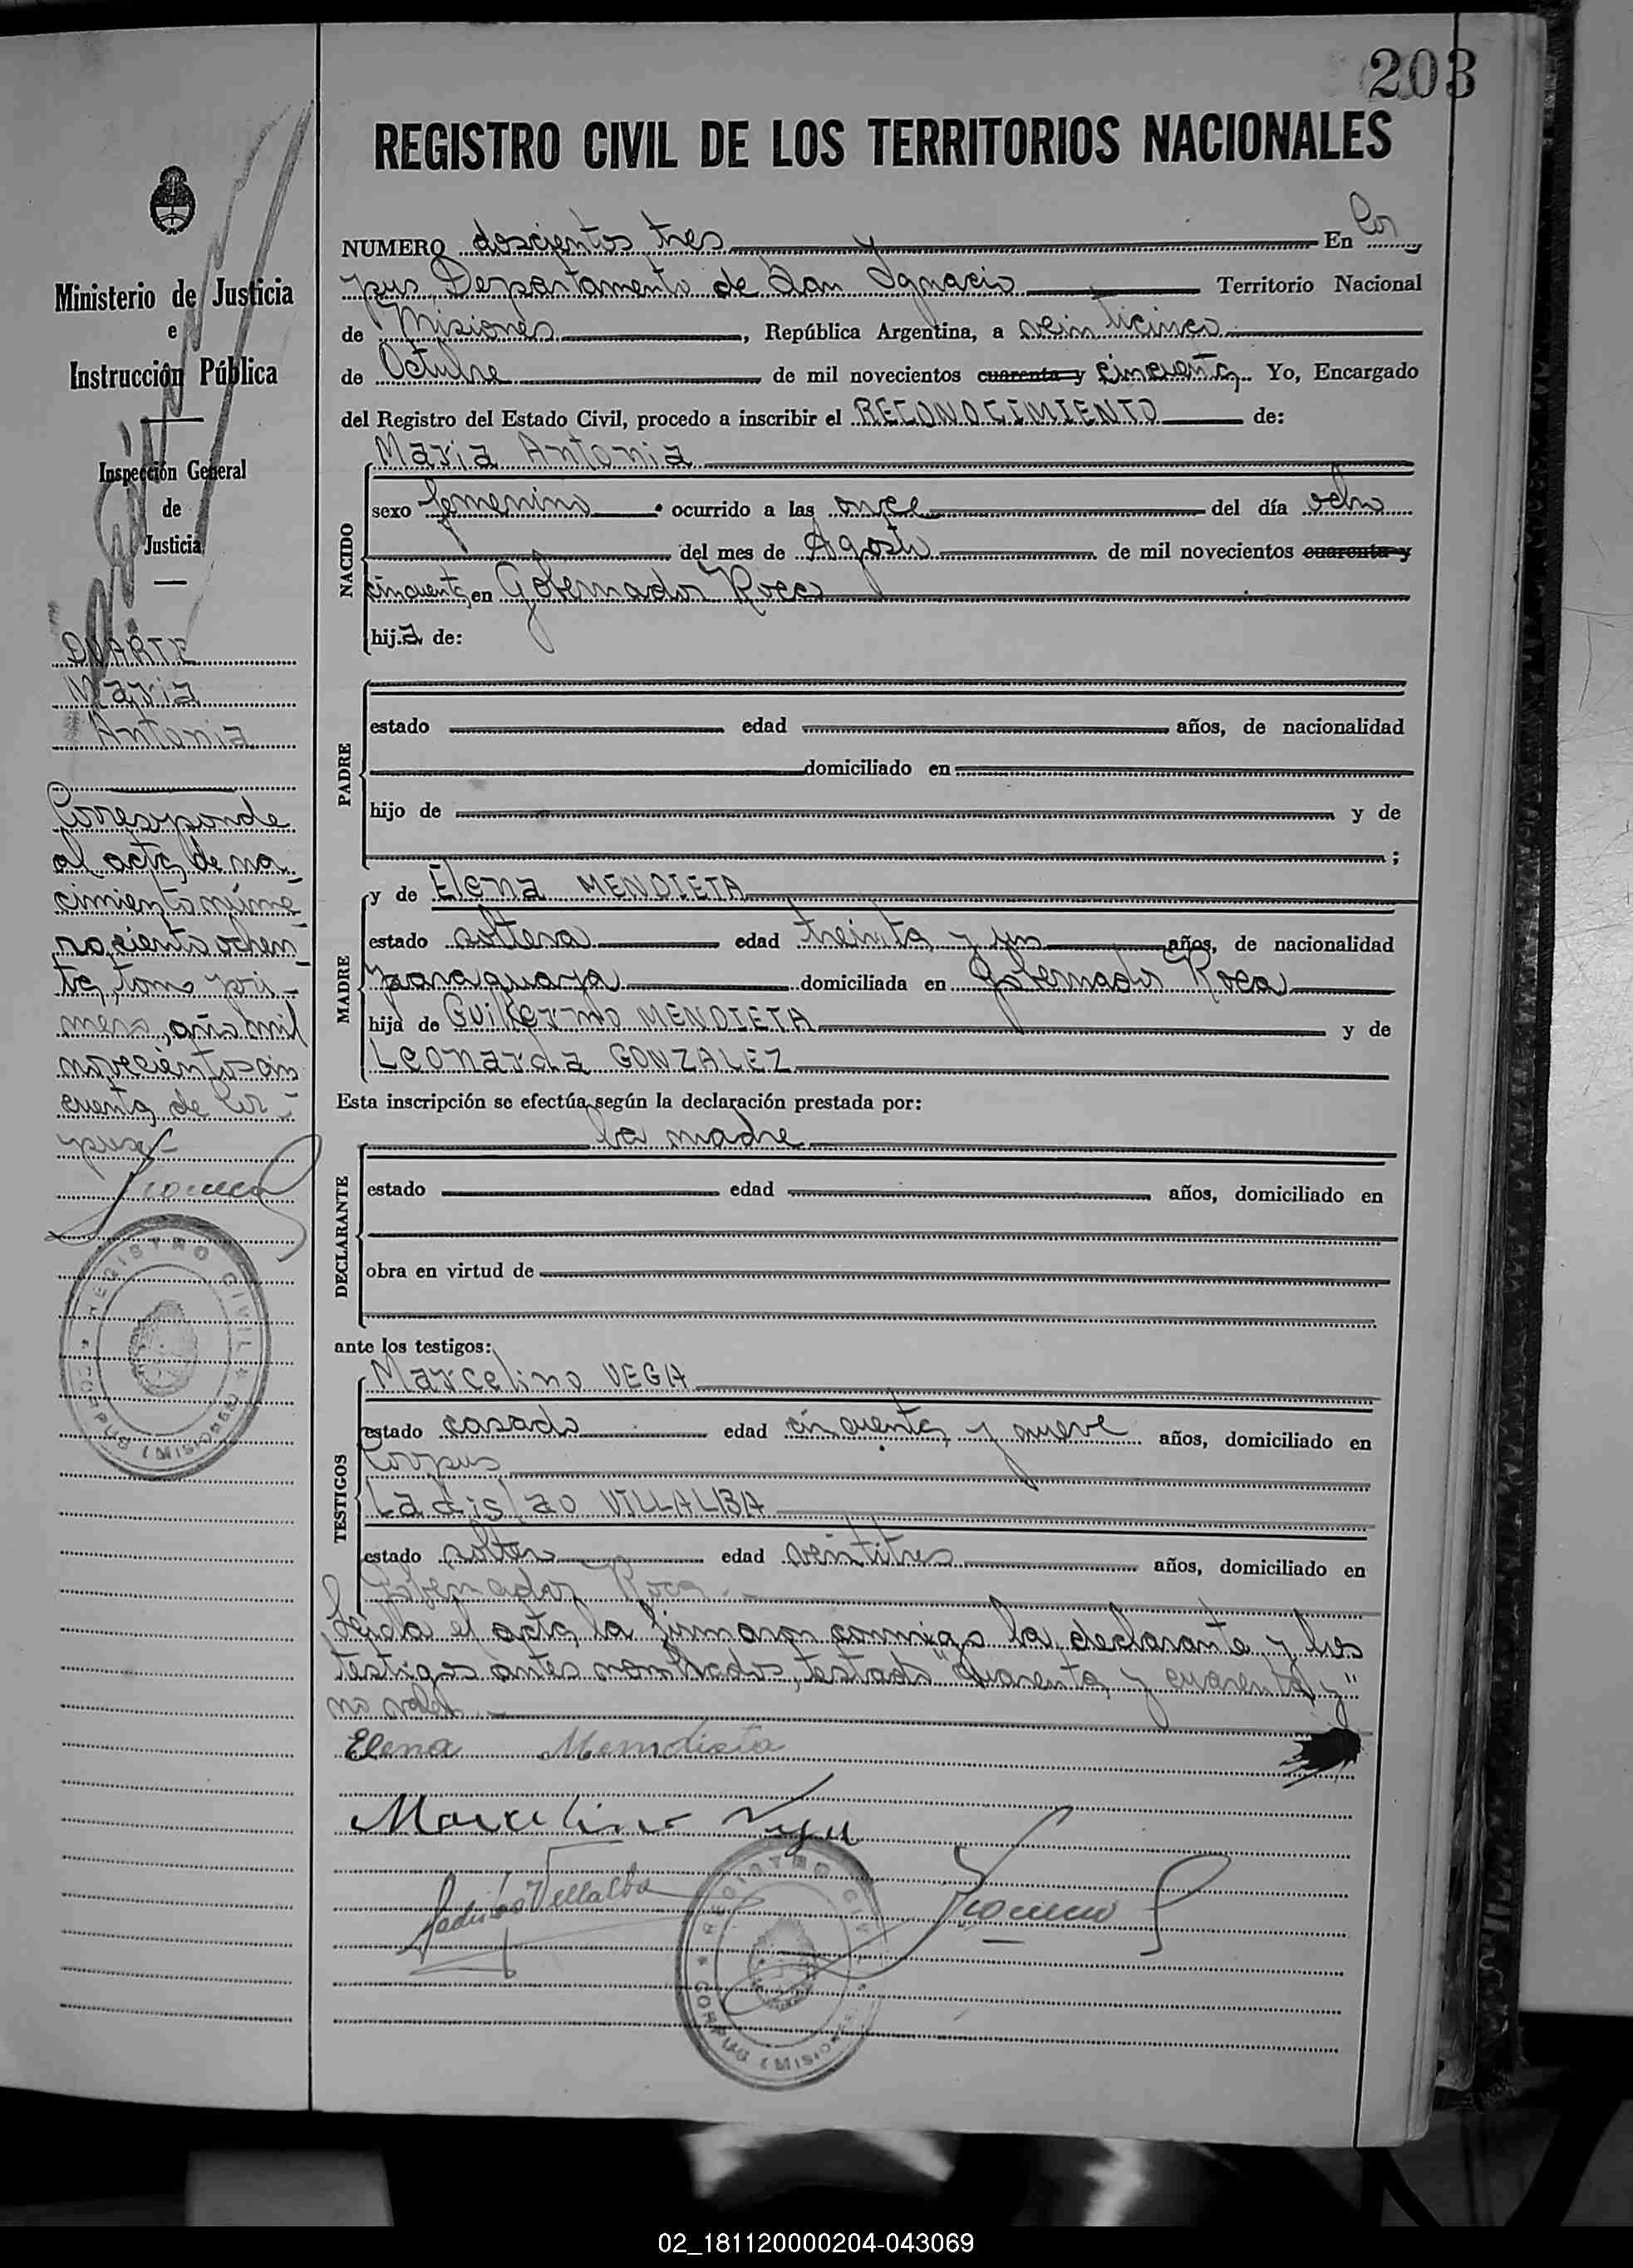 203
REGISTRO CIVIL DE LOS TERRITORIOS NACIONALES
NUMERO doscientos tres En Cor
pus Departamento de San Ignacio Territorio Nacional
de Misiones, República Argentina, a veinticinco
de Octubre de mil novecientos cuarenta y cincuenta. Yo, Encargado
del Registro del Estado Civil, procedo a inscribir el RECONOCIMIENTO de:
NACIDO
Maria Antonia
sexo femenino ocurrido a las once del día ocho
del mes de Agosto de mil novecientos cuarenta y
cincuenta, en Gobernador Roca
hija de:
PADRE
estado edad años, de nacionalidad
domiciliado en
hijo de y de
;
MADRE
y de Elena MENDIETA
estado soltera edad treinta y un años, de nacionalidad
paraguaya domiciliada en Gobernador Roca
hija de Guillermo MENDIETA y de
Leonarda GONZALEZ
Esta inscripción se efectúa según la declaración prestada por:
DECLARANTE
la madre
estado edad años, domiciliado en
obra en virtud de
ante los testigos:
TESTIGOS
Marcelino VEGA
estado casado edad cincuenta y nueve años, domiciliado en
Corpus
Ladislao VILLALBA
estado soltero edad veintitres años, domiciliado en
Gobernador Roca
Leida el acta, la firmaron conmigo la declarante y los
testigos antes nombrados, testado "cuarenta y cuarenta y"
no vale.
Elena Mendieta
Marcelino Vega
Ladislao Villalba
REGISTRO CIVIL
CORPUS (MISIONES)
Ministerio de Justicia
e
Instrucción Pública
Inspección General
de
Justicia
DUARTE
Maria
Antonia
Corresponde
al acta de na-
cimiento núme-
ro ciento ochen-
ta, tomo pri-
mero, año mil
novecientos cin
cuenta, de Cor-
pus.-
REGISTRO CIVIL
CORPUS (MISIONES)
02_181120000204-043069